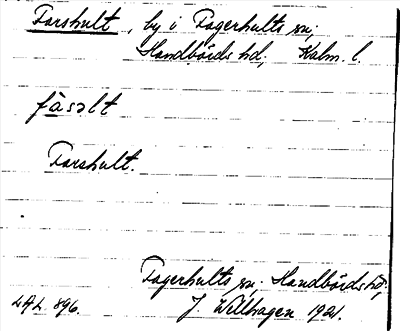 Farshult, by i Fagerhults sn;
Handbörds hd, Kalm. l.
fàsəlt
Farshult.
Fagerhults sn. Handbörds hd,
LAL 896. J. Wellhagen 1921.